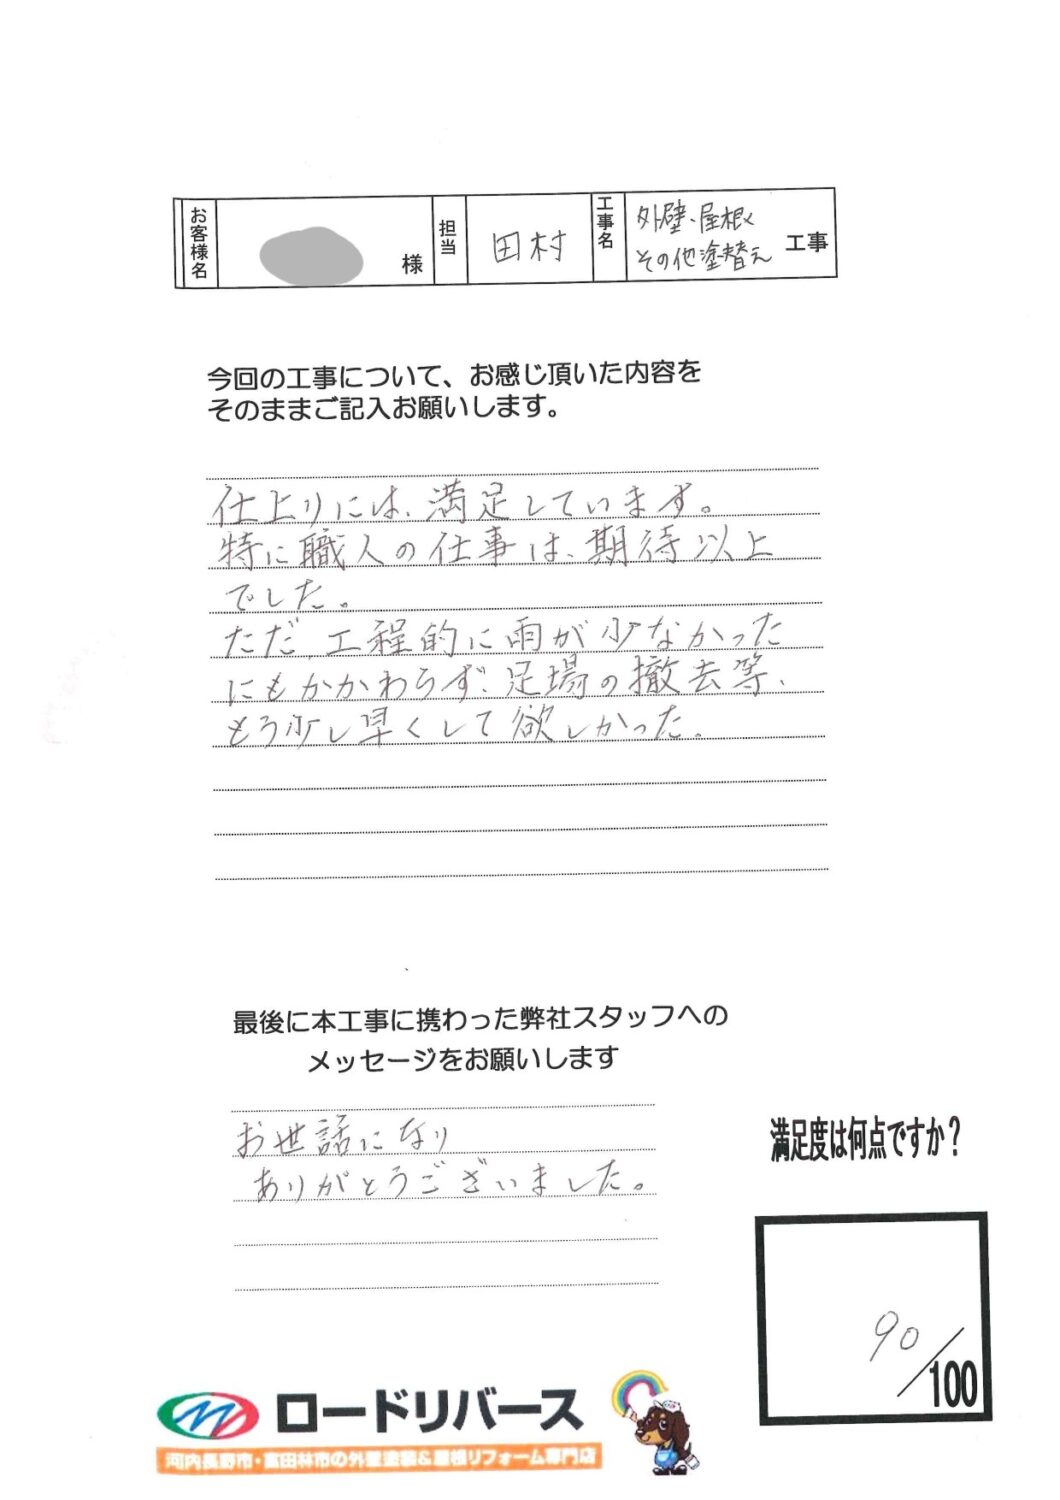 お客様名 様 担当 田村 工事名 外壁、屋根 その他塗替え 工事
今回の工事について、お感じ頂いた内容を
そのままご記入お願いします。
仕上りには、満足しています。
特に職人の仕事は、期待以上
でした。
ただ、工程的に雨が少なかった
にもかかわらず、足場の撤去等、
もう少し早くして欲しかった。
最後に本工事に携わった弊社スタッフへの
メッセージをお願いします
お世話になり
ありがとうございました。
満足度は何点ですか?
90/100
ロードリバース
河内長野市・富田林市の外壁塗装&屋根リフォーム専門店